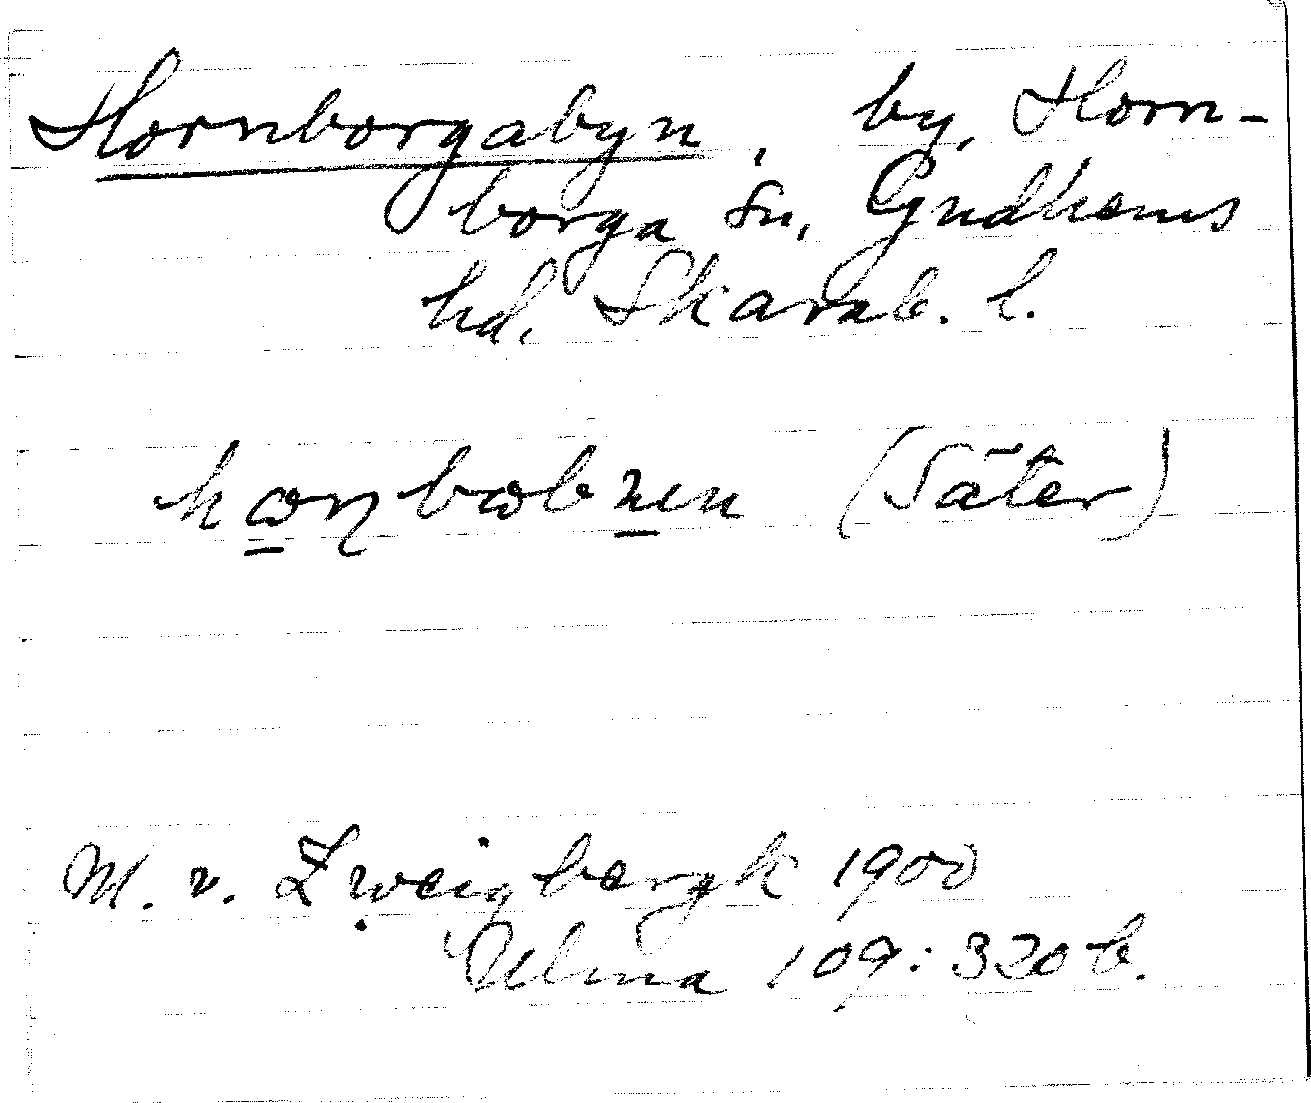 Hornborgabyn, by, Horn-
borga sn, Gudhems
hd. Skarab. l.
(Säter)
M. v. Zweigbergk 1900
Ulma 109:320 b.